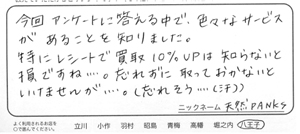 今回 アンケートに答える中で、色々なサービス
があることを知りました。
特にレシートで買取10%UPは知らないと
損ですね…。忘れずに取っておかないと
いけませんが…。(忘れそう…(汗))
ニックネーム 天然PANKS
よく利用されるお店を
○で囲んでください。
立川 小作 羽村 昭島 青梅 高幡 堀之内 八王子